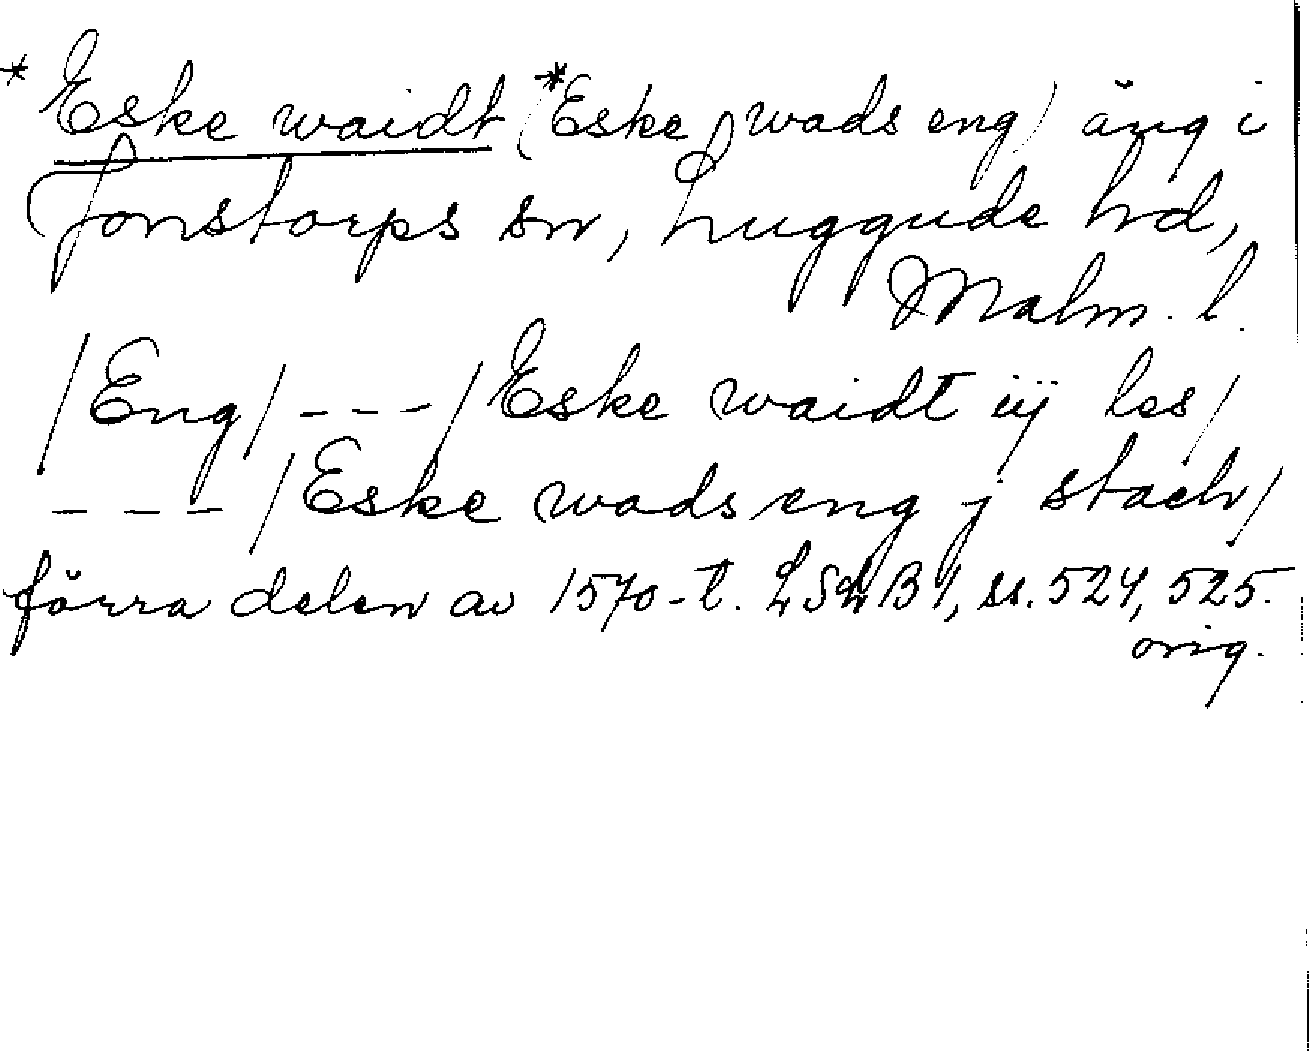 *Eske waidt (*Eske wads eng) äng i
Jonstorps sn, Luggude hd,
Malm. l.
/Eng/ --- /Eske waidt iij les/
--- /Eske wads eng j stach/
förra delen av 1570-t. LSLB 1, ss. 524, 525.
orig.